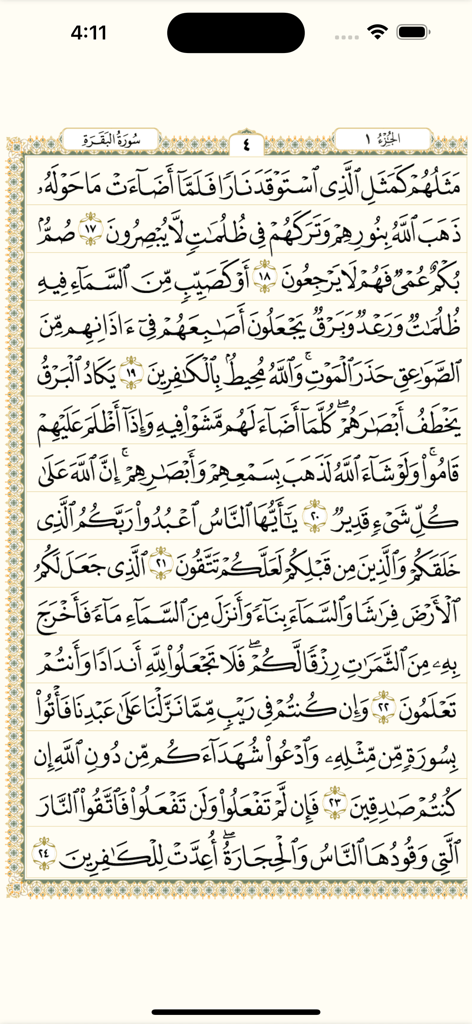 4:11
الجُزْءُ ١
٤
سُورَةُ البَقَرَةِ
مَثَلُهُمْ كَمَثَلِ ٱلَّذِى ٱسْتَوْقَدَ نَارًا فَلَمَّآ أَضَآءَتْ مَا حَوْلَهُۥ
ذَهَبَ ٱللَّهُ بِنُورِهِمْ وَتَرَكَهُمْ فِى ظُلُمَـٰتٍ لَّا يُبْصِرُونَ ١٧ صُمٌّۢ
بُكْمٌ عُمْىٌ فَهُمْ لَا يَرْجِعُونَ ١٨ أَوْ كَصَيِّبٍ مِّنَ ٱلسَّمَآءِ فِيهِ
ظُلُمَـٰتٌ وَرَعْدٌ وَبَرْقٌ يَجْعَلُونَ أَصَـٰبِعَهُمْ فِىٓ ءَاذَانِهِم مِّنَ
ٱلصَّوَٰعِقِ حَذَرَ ٱلْمَوْتِ ۚ وَٱللَّهُ مُحِيطٌۢ بِٱلْكَـٰفِرِينَ ١٩ يَكَادُ ٱلْبَرْقُ
يَخْطَفُ أَبْصَـٰرَهُمْ ۖ كُلَّمَآ أَضَآءَ لَهُم مَّشَوْا۟ فِيهِ وَإِذَآ أَظْلَمَ عَلَيْهِمْ
قَامُوا۟ ۚ وَلَوْ شَآءَ ٱللَّهُ لَذَهَبَ بِسَمْعِهِمْ وَأَبْصَـٰرِهِمْ ۚ إِنَّ ٱللَّهَ عَلَىٰ
كُلِّ شَىْءٍ قَدِيرٌ ٢٠ يَـٰٓأَيُّهَا ٱلنَّاسُ ٱعْبُدُوا۟ رَبَّكُمُ ٱلَّذِى
خَلَقَكُمْ وَٱلَّذِينَ مِن قَبْلِكُمْ لَعَلَّكُمْ تَتَّقُونَ ٢١ ٱلَّذِى جَعَلَ لَكُمُ
ٱلْأَرْضَ فِرَٰشًا وَٱلسَّمَآءَ بِنَآءً وَأَنزَلَ مِنَ ٱلسَّمَآءِ مَآءً فَأَخْرَجَ
بِهِۦ مِنَ ٱلثَّمَرَٰتِ رِزْقًا لَّكُمْ ۖ فَلَا تَجْعَلُوا۟ لِلَّهِ أَندَادًا وَأَنتُمْ
تَعْلَمُونَ ٢٢ وَإِن كُنتُمْ فِى رَيْبٍ مِّمَّا نَزَّلْنَا عَلَىٰ عَبْدِنَا فَأْتُوا۟
بِسُورَةٍ مِّن مِّثْلِهِۦ وَٱدْعُوا۟ شُهَدَآءَكُم مِّن دُونِ ٱللَّهِ إِن
كُنتُمْ صَـٰدِقِينَ ٢٣ فَإِن لَّمْ تَفْعَلُوا۟ وَلَن تَفْعَلُوا۟ فَٱتَّقُوا۟ ٱلنَّارَ
ٱلَّتِى وَقُودُهَا ٱلنَّاسُ وَٱلْحِجَارَةُ ۖ أُعِدَّتْ لِلْكَـٰفِرِينَ ٢٤